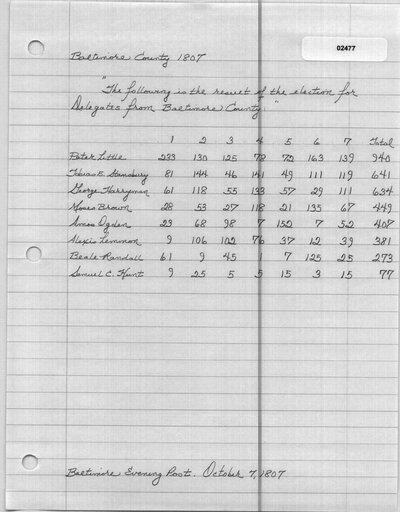 02477
Baltimore County 1807
"The following is the result of the election for
Delegates from Baltimore County."
1 2 3 4 5 6 7 Total
Peter Little 233 130 125 78 72 163 139 940
Tobias E. Stansbury 81 144 46 141 49 111 119 641
George Harryman 61 118 55 133 57 29 111 634
Moses Brown 28 53 27 118 21 135 67 449
Amos Ogden 23 68 98 7 152 7 52 407
Alexis Lemmon 9 106 102 76 37 12 39 381
Beale Randall 61 9 45 1 7 125 25 273
Samuel C. Hunt 9 25 5 5 15 3 15 77
Baltimore Evening Post. October 7, 1807